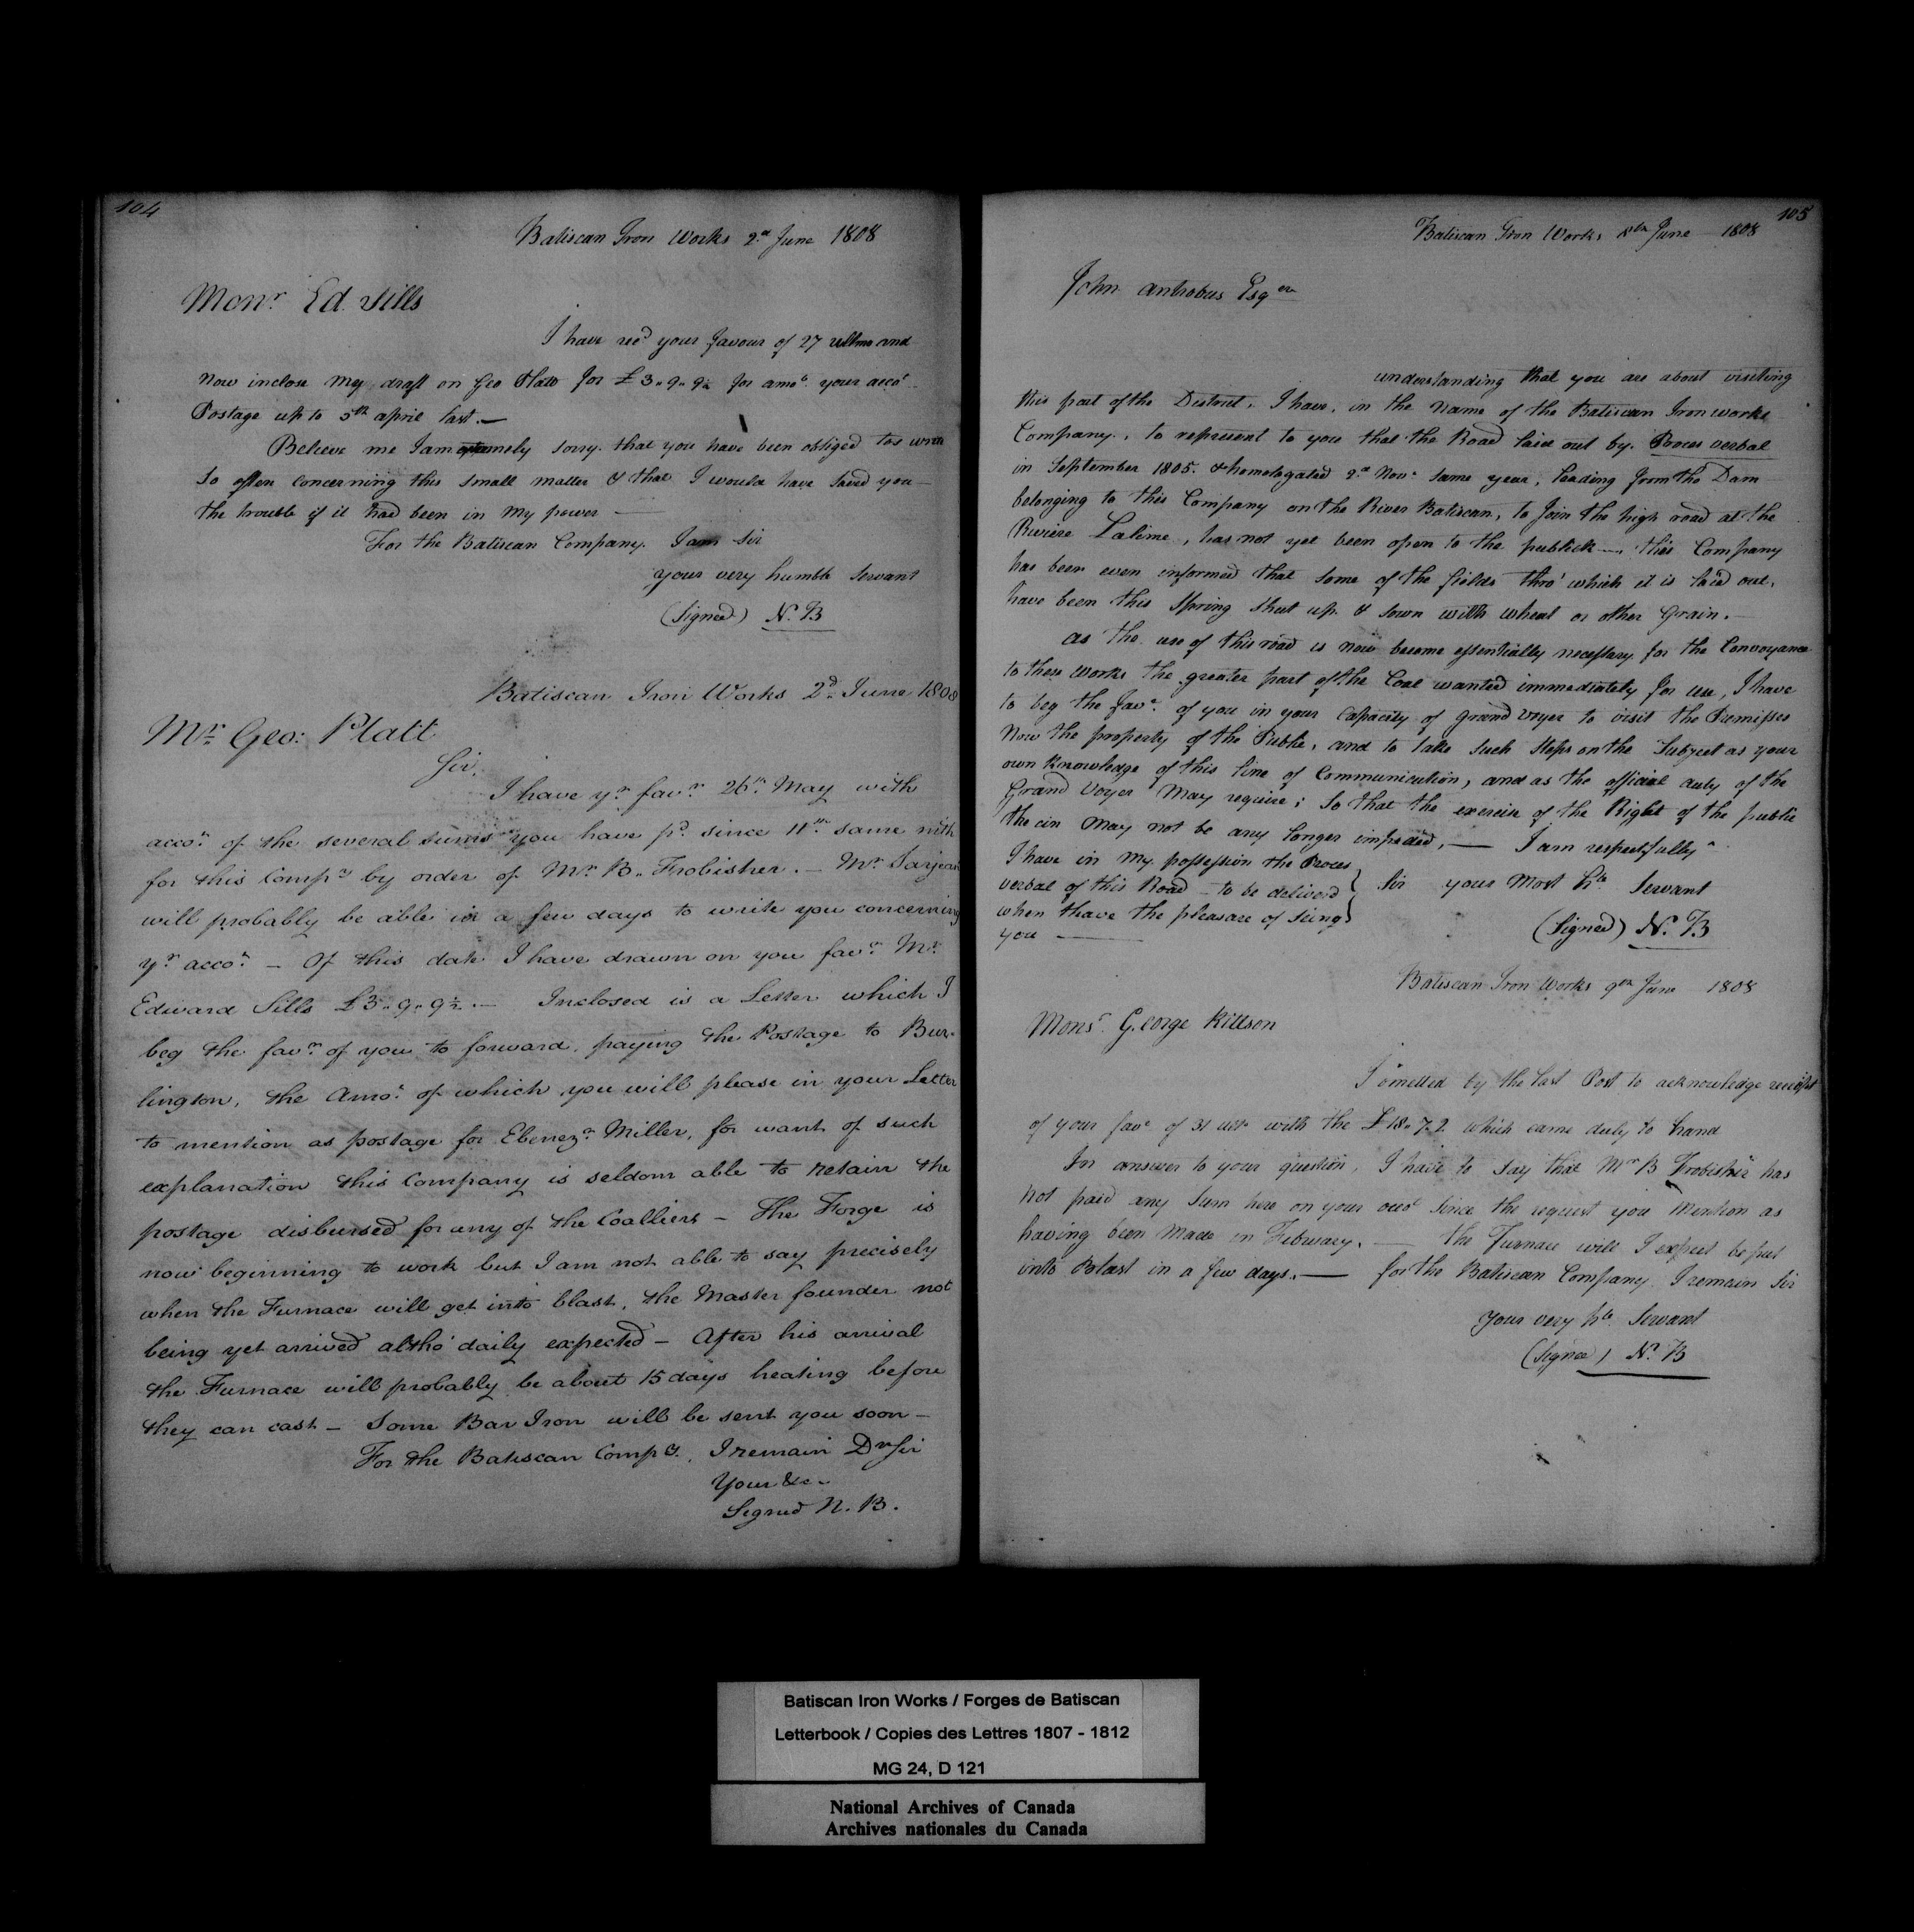 104
Batiscan Iron Works 2d June 1808
Monr Ed. Sills
I have recd your favour of 27 ultmo and
now inclose my draft on Geo Platt for £3..9..9½ for amot your accot
Postage up to 5th april last.—
Believe me I am extremely sorry that you have been obliged to write
so often concerning this small matter & that I would have saved you—
the trouble if it had been in my power—
For the Batiscan Company. I am Sir
your very humble Servant
(Signed) N. B
Batiscan Iron Works 2d June 1808
Mr Geo: Platt
Sir,
I have yr favr 26th May with
accot of the several sums you have pd since 11th same mth
for this Compy by order of Mr B. Frobisher.— Mr Sarjean
will probably be able in a few days to write you concerning
yr accot — Of this date I have drawn on you favr Mr
Edward Sills £3..9..9½.— Inclosed is a Letter which I
beg the favr of you to forward, paying the Postage to Bur-
lington, the Amot of which you will please in your Letter
to mention as postage for Ebenezr Miller, for want of such
explanation this Company is seldom able to retain the
postage disbursed for any of the Coalliers — The Forge is
now beginning to work but I am not able to say precisely
when the Furnace will get into blast, the Master founder not
being yet arrived altho' daily expected — After his arrival
the Furnace will probably be about 15 days heating before
they can cast — Some Bar Iron will be sent you soon —
For the Batiscan Compy., I remain Dr Sir
Your &c..
Signed N. B.
105
Batiscan Iron Works 8th June 1808
John antrobus Esqre
understanding that you are about visiting
this part of the District, I have, in the name of the Batiscan Iron works
Company, to represent to you that the Road laid out by Proces verbal
in September 1805. & homologated 2d Novr same year, leading from the Dam
belonging to this Company on the River Batiscan, to Join the high road at the
Riviere Lalime, has not yet been open to the publick — this Company
has been even informed that some of the fields thro' which it is laid out,
have been this Spring shut up & sown with wheat or other Grain.—
as the use of this road is now become essentially necessary for the Conveyance
to these works the greater part of the Coal wanted immediately for use, I have
to beg the favr of you in your Capacity of Grand Voyer to visit the Premisses
Now the property of the Public, and to take such steps on the Subject as your
own knowledge of this line of Communication, and as the official duty of the
Grand Voyer may require; So that the exercise of the Right of the public
therein may not be any longer impeded,— I am respectfully
I have in my possession the Proces
verbal of this Road — to be deliverd
when I have the pleasure of Seing
you —
Sir your Most hble Servant
(Signed) N. B
Batiscan Iron Works 9th June 1808
Monsr George Kittson
I omitted by the last Post to acknowledge receipt
of your favr of 31 ulto with the £18..7..2 which came duly to hand
In answer to your question, I have to say that Mr B Frobisher has
not paid any sum here on your accot Since the request you mention as
having been made in February.— the Furnace will I expect be put
into Blast in a few days.— for the Batiscan Company I remain Sir
Your very hble Servant
(Signed) N. B
Batiscan Iron Works / Forges de Batiscan
Letterbook / Copies des Lettres 1807 - 1812
MG 24, D 121
National Archives of Canada
Archives nationales du Canada